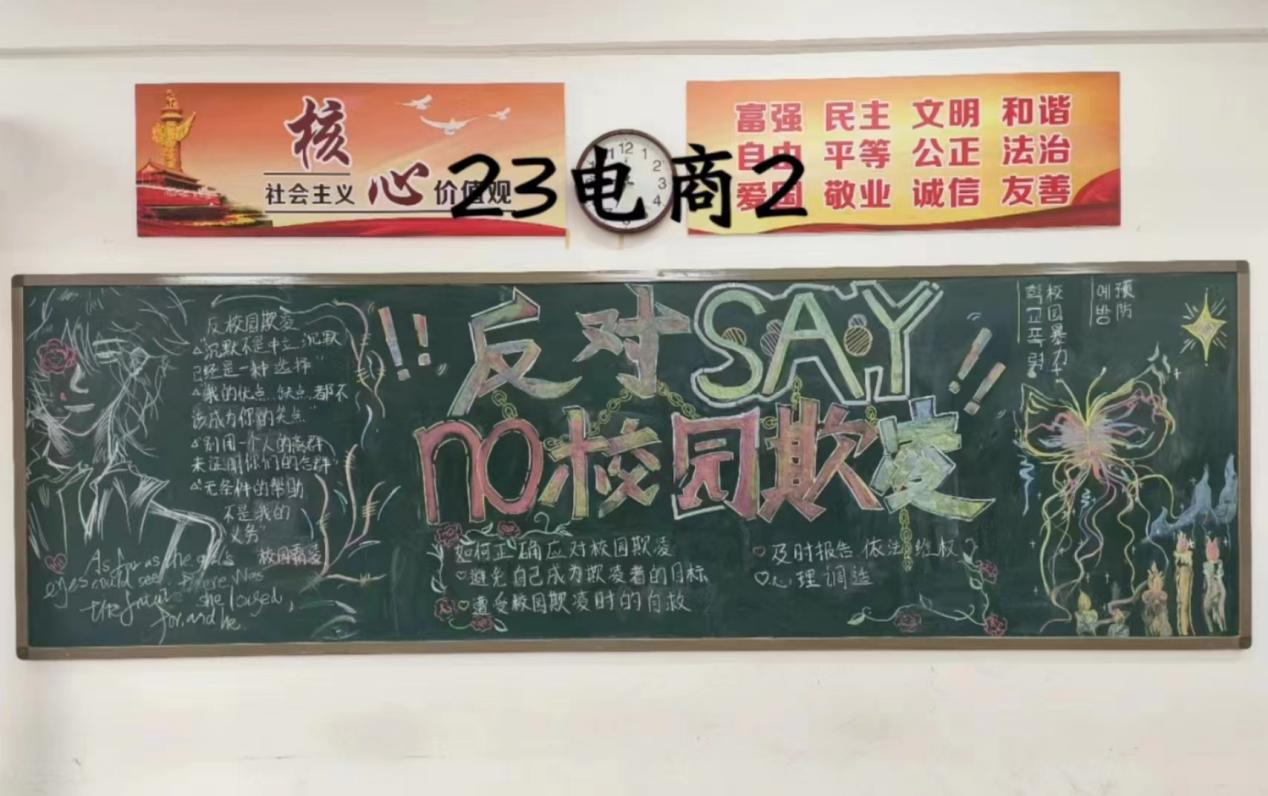 核
社会主义 心 价值观
富强 民主 文明 和谐
自由 平等 公正 法治
爱国 敬业 诚信 友善
23电商2
12
1
2
3
4
反校园欺凌
"沉默不是中立,沉默
已经是一种选择"
"我的优点.缺点.都不
该成为你的笑点"
"别用一个人的离群
来证明你们的合群"
"无条件的帮助
不是我的
义务"
校园霸凌
As far as the
eyes could see. There was
the she loved,
for and he.
!! 反对SAY !!
no校园欺凌
如何正确应对校园欺凌
避免自己成为欺凌者的目标
遭受校园欺凌时的自救
及时报告 依法维权
心理调适
预防
예방
校园暴力
학교폭력